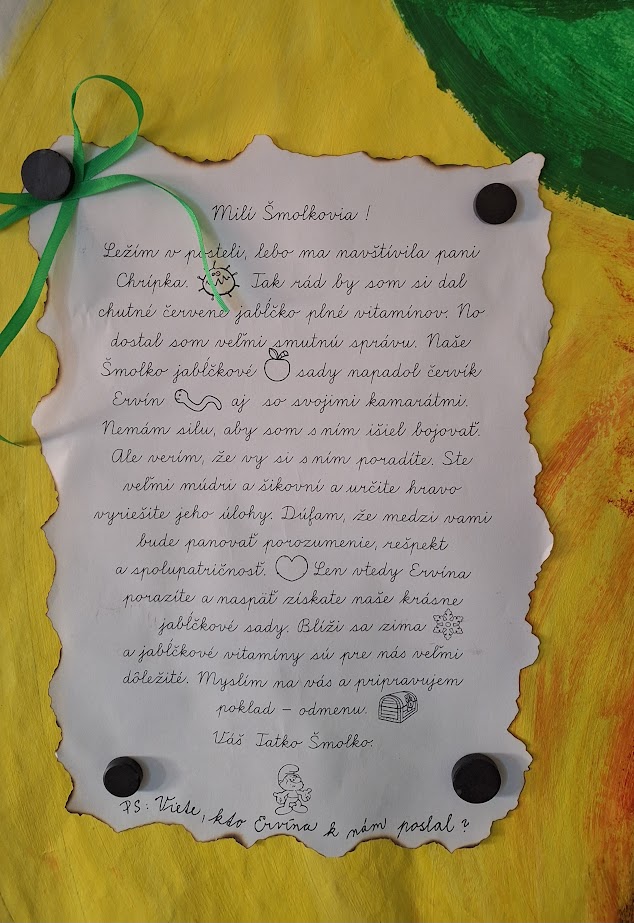 Milí Šmolkovia !
Ležím v posteli, lebo ma navštívila pani
Chrípka. Tak rád by som si dal
chutné červené jabĺčko plné vitamínov. No
dostal som veľmi smutnú správu. Naše
Šmolko jabĺčkové sady napadol červík
Ervín aj so svojimi kamarátmi.
Nemám silu, aby som s ním išiel bojovať.
Ale verím, že vy si s ním poradíte. Ste
veľmi múdri a šikovní a určite hravo
vyriešite jeho úlohy. Dúfam, že medzi vami
bude panovať porozumenie, rešpekt
a spolupatričnosť. Len vtedy Ervína
porazíte a naspäť získate naše krásne
jabĺčkové sady. Blíži sa zima
a jabĺčkové vitamíny sú pre nás veľmi
dôležité. Myslím na vás a pripravujem
poklad – odmenu.
Váš Tatko Šmolko.
PS: Viete, kto Ervína k nám poslal ?